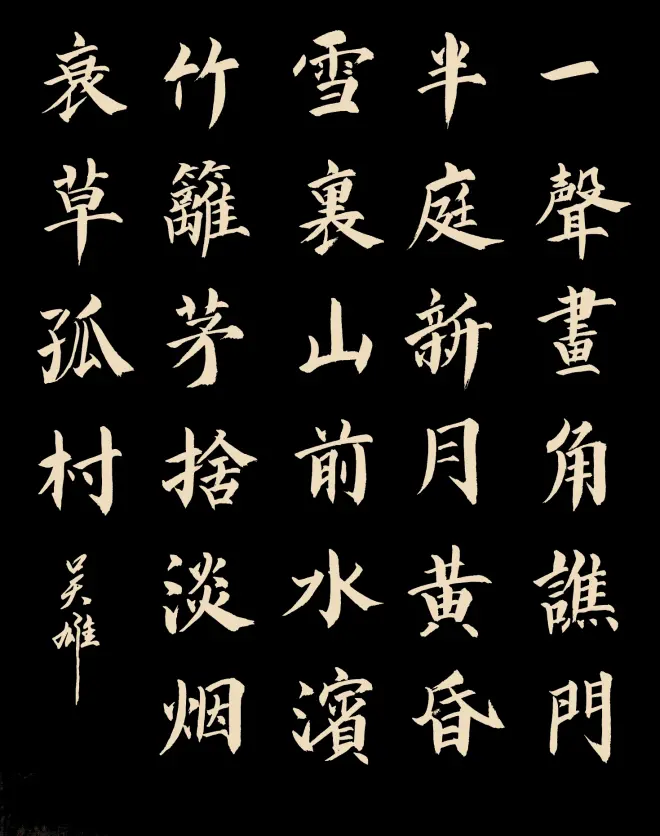 一聲畫角譙門
半庭新月黄昏
雪裏山前水濱
竹籬茅捨淡烟
衰草孤村
吴雄